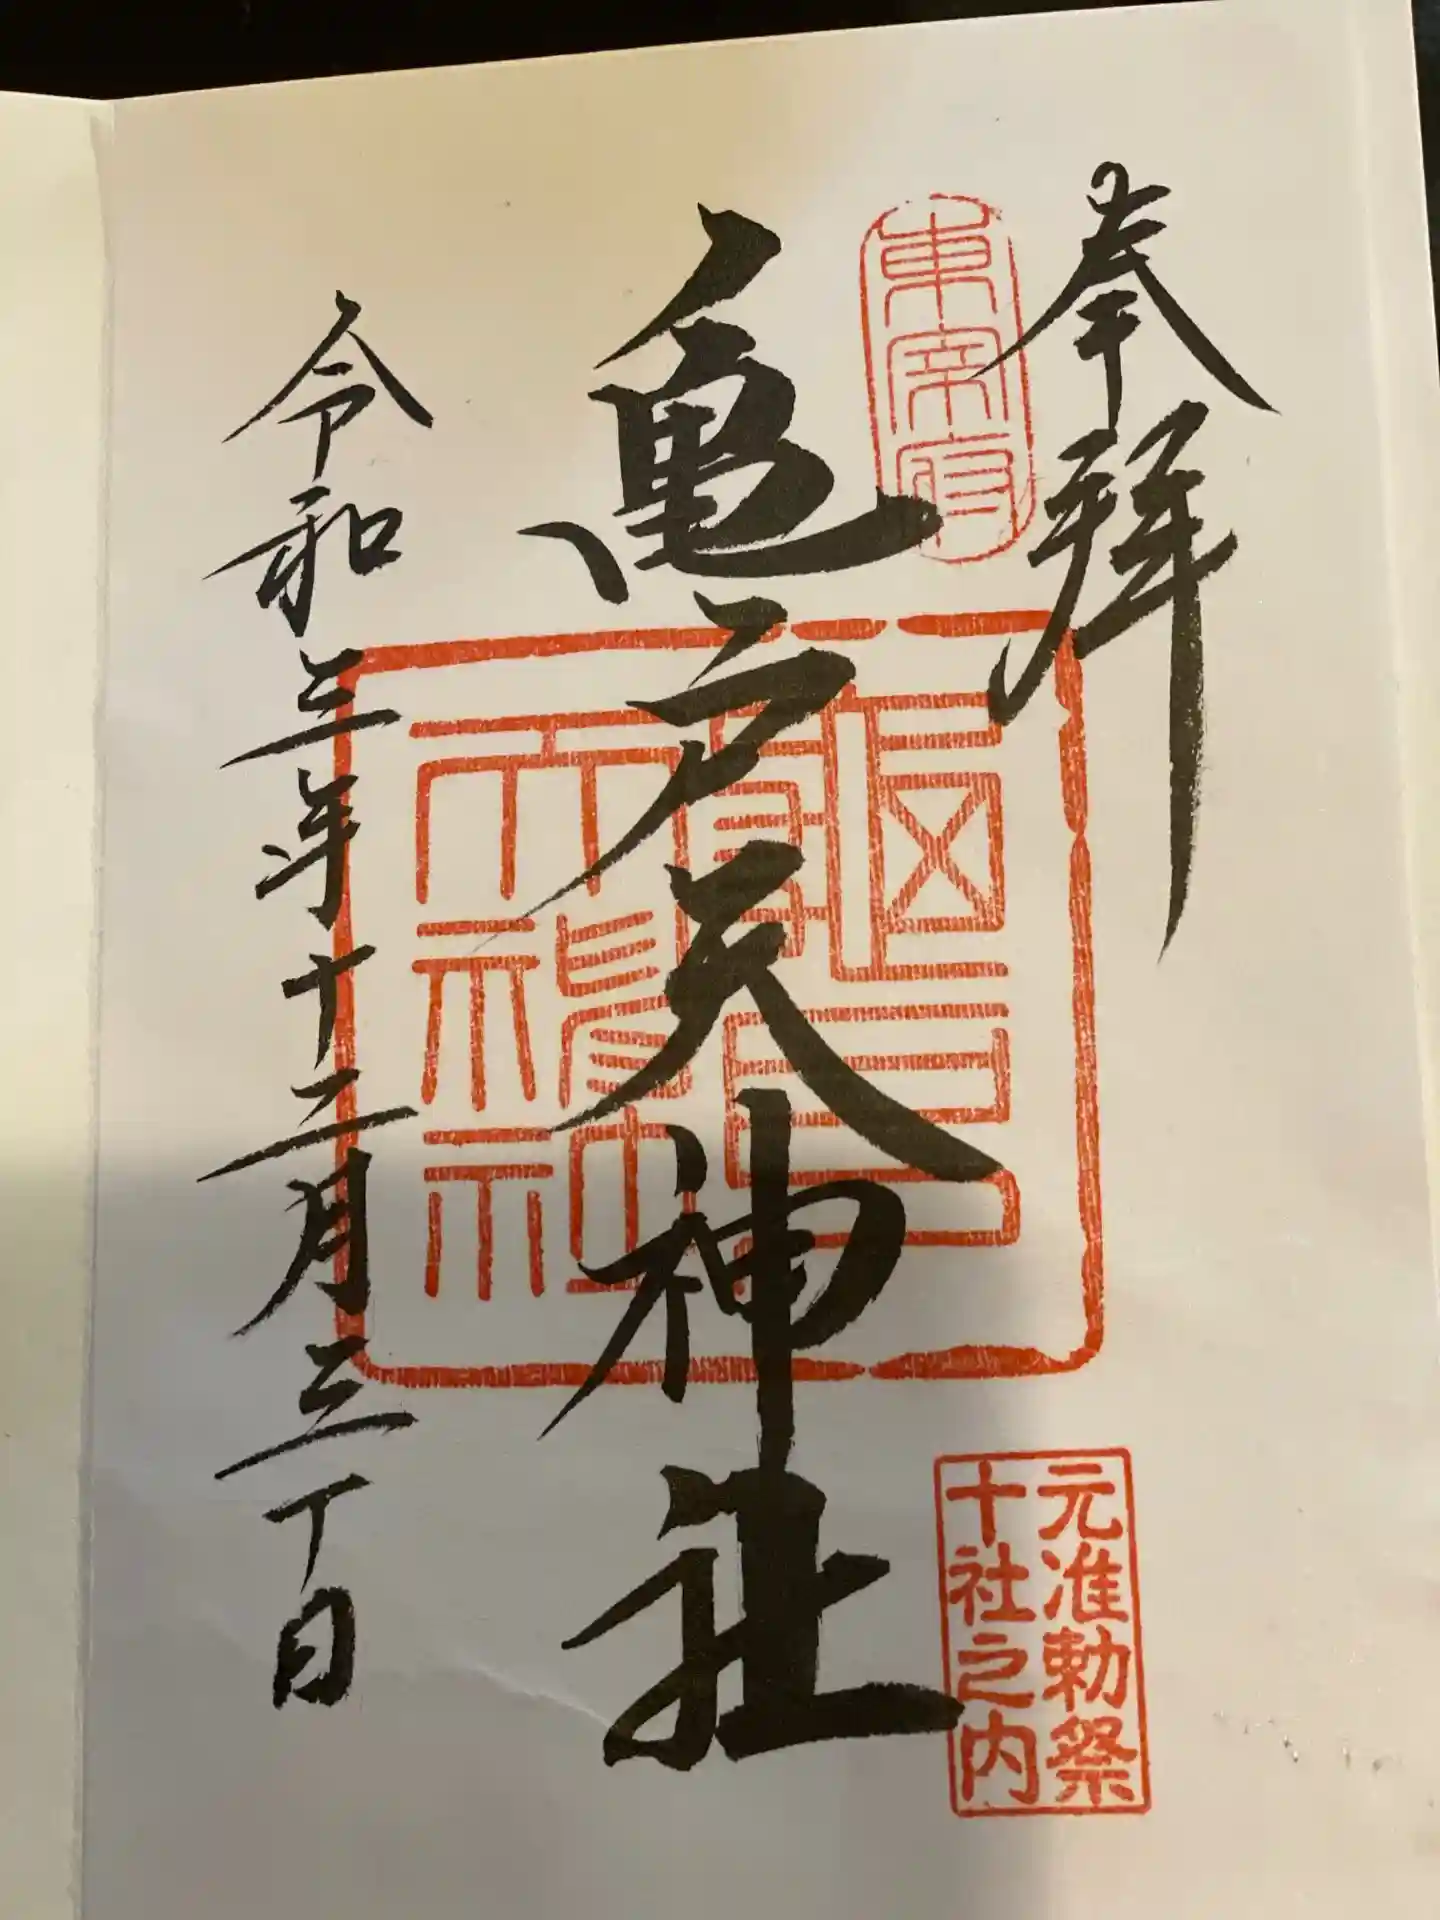 奉拝
東宰府
亀戸天神社
龜戸
天神社
令和三年十二月三十日
元准勅祭
十社之内